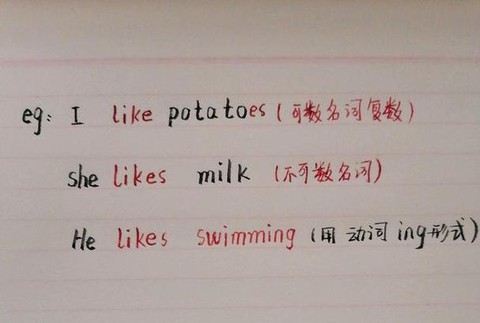 eg: I like potatoes (可数名词复数)
she likes milk (不可数名词)
He likes swimming (用动词ing形式)